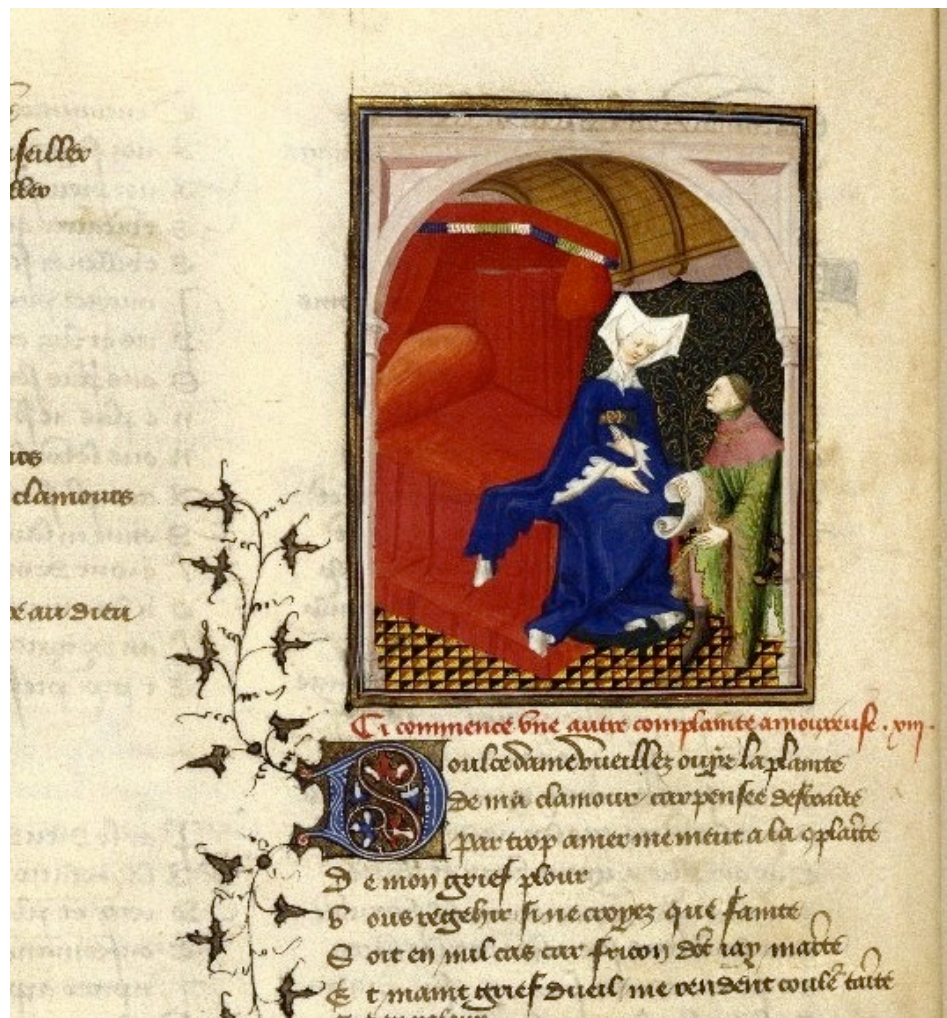 seillez
llez
clamours
e au dieu
Ci commence vne autre complainte amoureuse . xiij .
Doulce dame vueillez ouyr la plainte
De ma clamour car pensee destrainte
Par trop amer me meut a la 9plaĩte
De mon grief plour
Vous regehir si ne croyez que fainte
Soit en nul cas car fricon dõt iay mainte
Et maint grief dueil me rendent couleʳ tainte